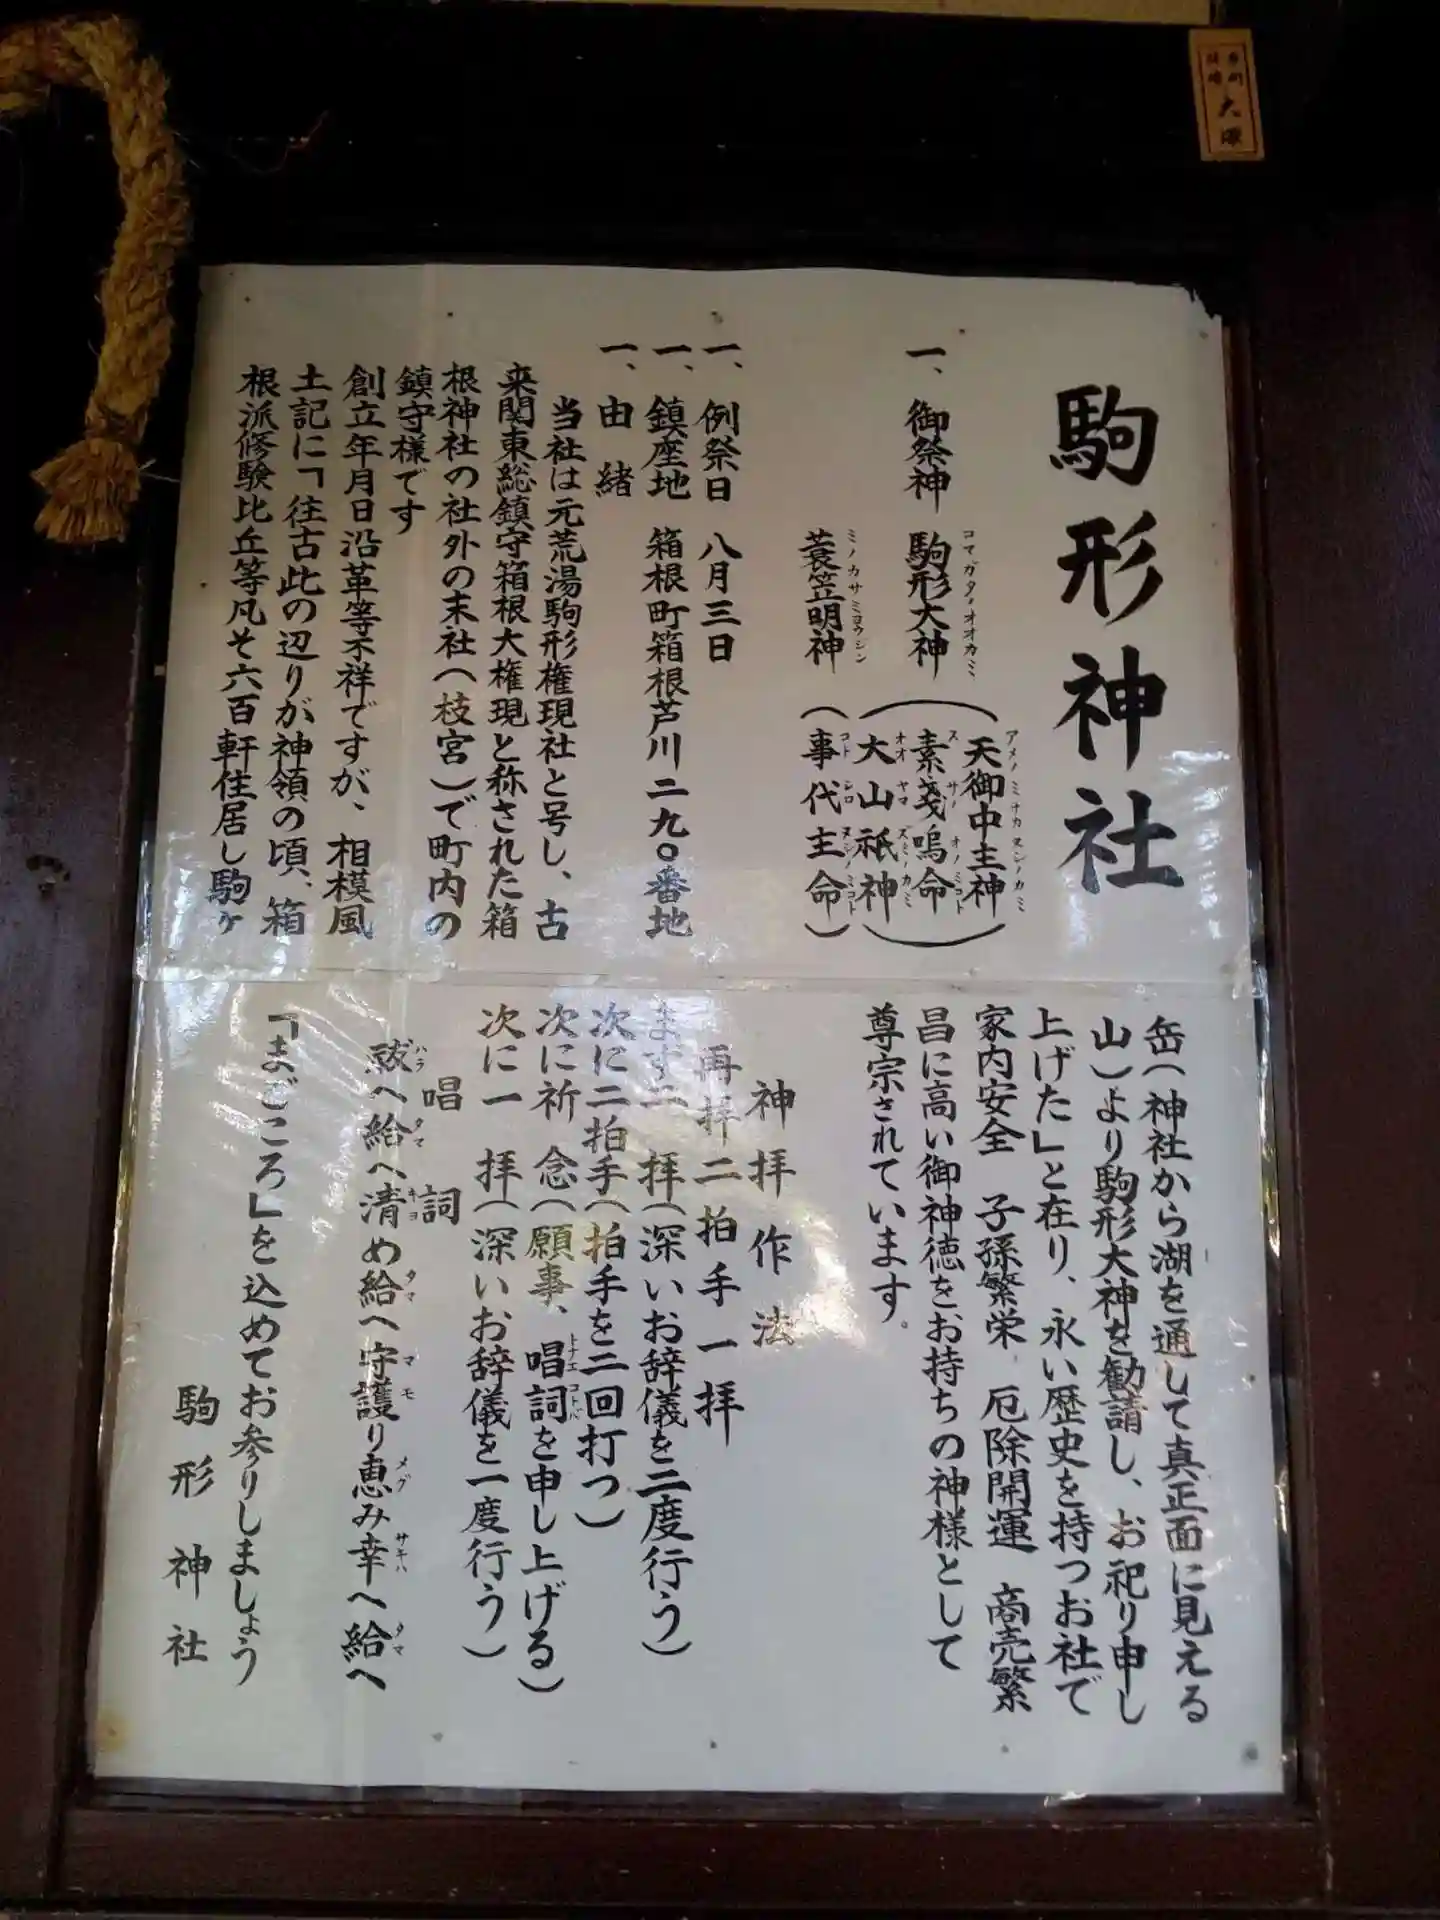 駒形神社
一、御祭神 駒形大神(天御中主神
コマガタノオオカミ アメノミナカヌシノカミ
素戔嗚命
スサノオノミコト
大山祇神)
オオヤマズミノカミ
蓑笠明神(事代主命)
ミノカサミョウジン コトシロヌシノミコト
一、例祭日 八月三日
一、鎮座地 箱根町箱根芦川二九〇番地
一、由緒
当社は元荒湯駒形権現社と号し、古
来関東総鎮守箱根大権現と称された箱
根神社の社外の末社(枝宮)で町内の
鎮守様です
創立年月日沿革等不祥ですが、相模風
土記に「往古此の辺りが神領の頃、箱
根派修験比丘等凡そ六百軒住居し駒ヶ
岳(神社から湖を通して真正面に見える
山)より駒形大神を勧請し、お祀り申し
上げた」と在り、永い歴史を持つお社で
家内安全 子孫繁栄 厄除開運 商売繁
昌に高い御神徳をお持ちの神様として
尊宗されています。
神拝作法
再拝二拍手一拝
まず二拝(深いお辞儀を二度行う)
次に二拍手(拍手を二回打つ)
次に祈念(願事、唱詞を申し上げる)
トナエコトバ
次に一拝(深いお辞儀を一度行う)
唱詞
祓へ給へ清め給へ守護り恵み幸へ給へ
ハラ タマ キヨ タマ マモ メグ サキハ タマ
「まごころ」を込めてお参りしましょう
駒形神社
大澤